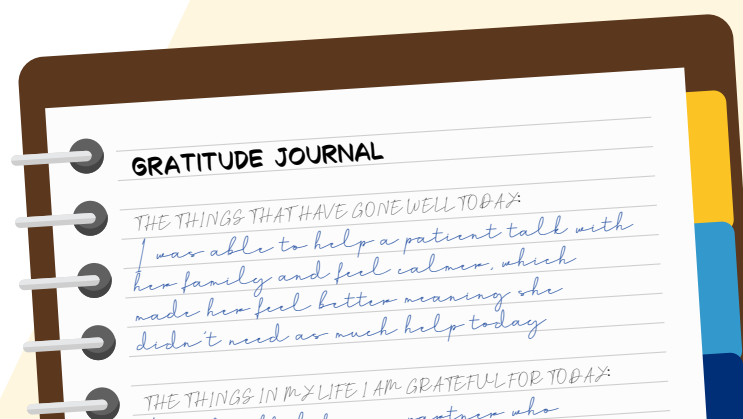 GRATITUDE JOURNAL
THE THINGS THAT HAVE GONE WELL TODAY:
I was able to help a patient talk with
her family and feel calmer, which
made her feel better meaning she
didn't need as much help today
THE THINGS IN MY LIFE I AM GRATEFUL FOR TODAY:
partner who